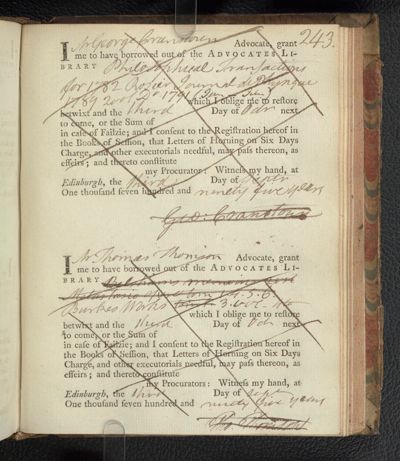 243.
I Mr George Cranstoun Advocate, grant
me to have borrowed out of the ADVOCATES LI-
BRARY Philosophical Transactions
for 1782 Rozier Journal de Physique
1789 2 vol. Do 1791 which I oblige me to restore
betwixt and the third Day of Octr next
to come, or the Sum of
in case of Failzie; and I consent to the Registration hereof in
the Books of Session, that Letters of Horning on Six Days
Charge, and other executorials needful, may pass thereon, as
effeirs; and thereto constitute
my Procurators: Witness my hand, at
Edinburgh, the third Day of Septr
One thousand seven hundred and ninety five years
Geo: Cranstoun
I Mr Thomas Thomson Advocate, grant
me to have borrowed out of the ADVOCATES LI-
BRARY
Burkes Works 3. vol. 4to
which I oblige me to restore
betwixt and the third Day of Octr next
to come, or the Sum of
in case of Failzie; and I consent to the Registration hereof in
the Books of Session, that Letters of Horning on Six Days
Charge, and other executorials needful, may pass thereon, as
effeirs; and thereto constitute
my Procurators: Witness my hand, at
Edinburgh, the third Day of Septr
One thousand seven hundred and ninety five years
Tho Thomson